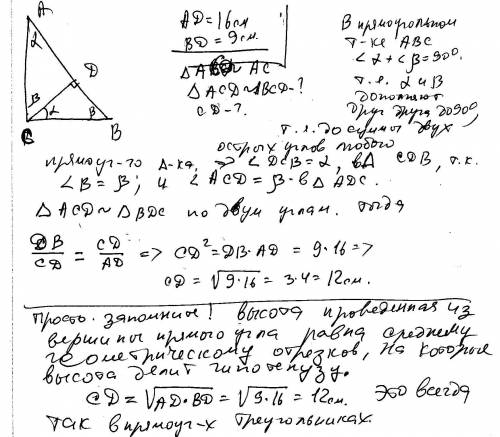 A
α
D
β
α
β
B
AD = 16 см
BD = 9 см.
△ACD ~ △BCD - ?
CD - ?
В прямоугольном
т-ке ABC
∠α + ∠β = 90°.
т.е. α и β
дополняют
друг друга до 90°,
т.е. до суммы двух
острых углов любого
прямоуг-го Δ-ка, => ∠DCB = α, в Δ CDB, т.к.
∠B = β; и ∠ACD = β - в Δ ADC.
△ACD ~ △BDC по двум углам. Тогда
DB/CD = CD/AD => CD² = DB·AD = 9·16 =>
CD = √9·16 = 3·4 = 12 см.
Просто запомните! высота проведенная из
вершины прямого угла равна среднему
геометрическому отрезков, на которые
высота делит гипотенузу.
CD = √AD·BD = √9·16 = 12 см. это всегда
так в прямоуг-х треугольниках.